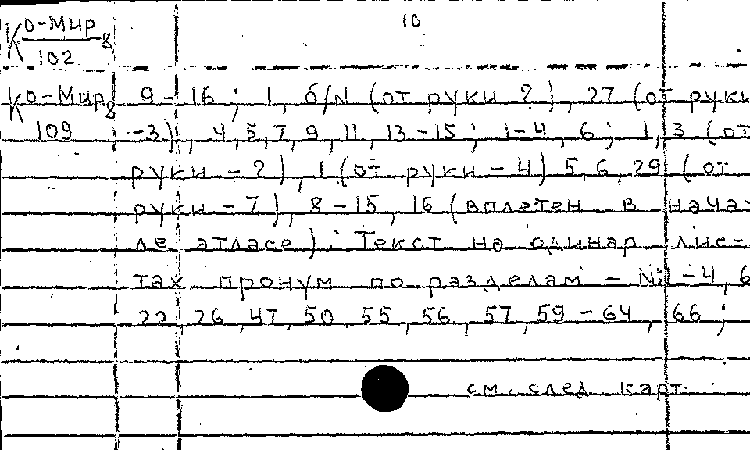 10
Ко-Мир 8
102
Ко-Мир 8 9-16; 1, б/N (от руки 2), 27 (от руки
109 -3), 4,5,7,9,11,13-15; 1-4, 6; 1,3 (от
руки - 2), 1 (от руки - 4) 5,6,29 (от
руки - 7), 8-15, 16 (вплетен в нача-
ле атласе). Текст на одинар лис-
тах пронум по разделам - №1-4, 6
22, 26, 47, 50, 55, 56, 57, 59-64, 66;
см. след карт.